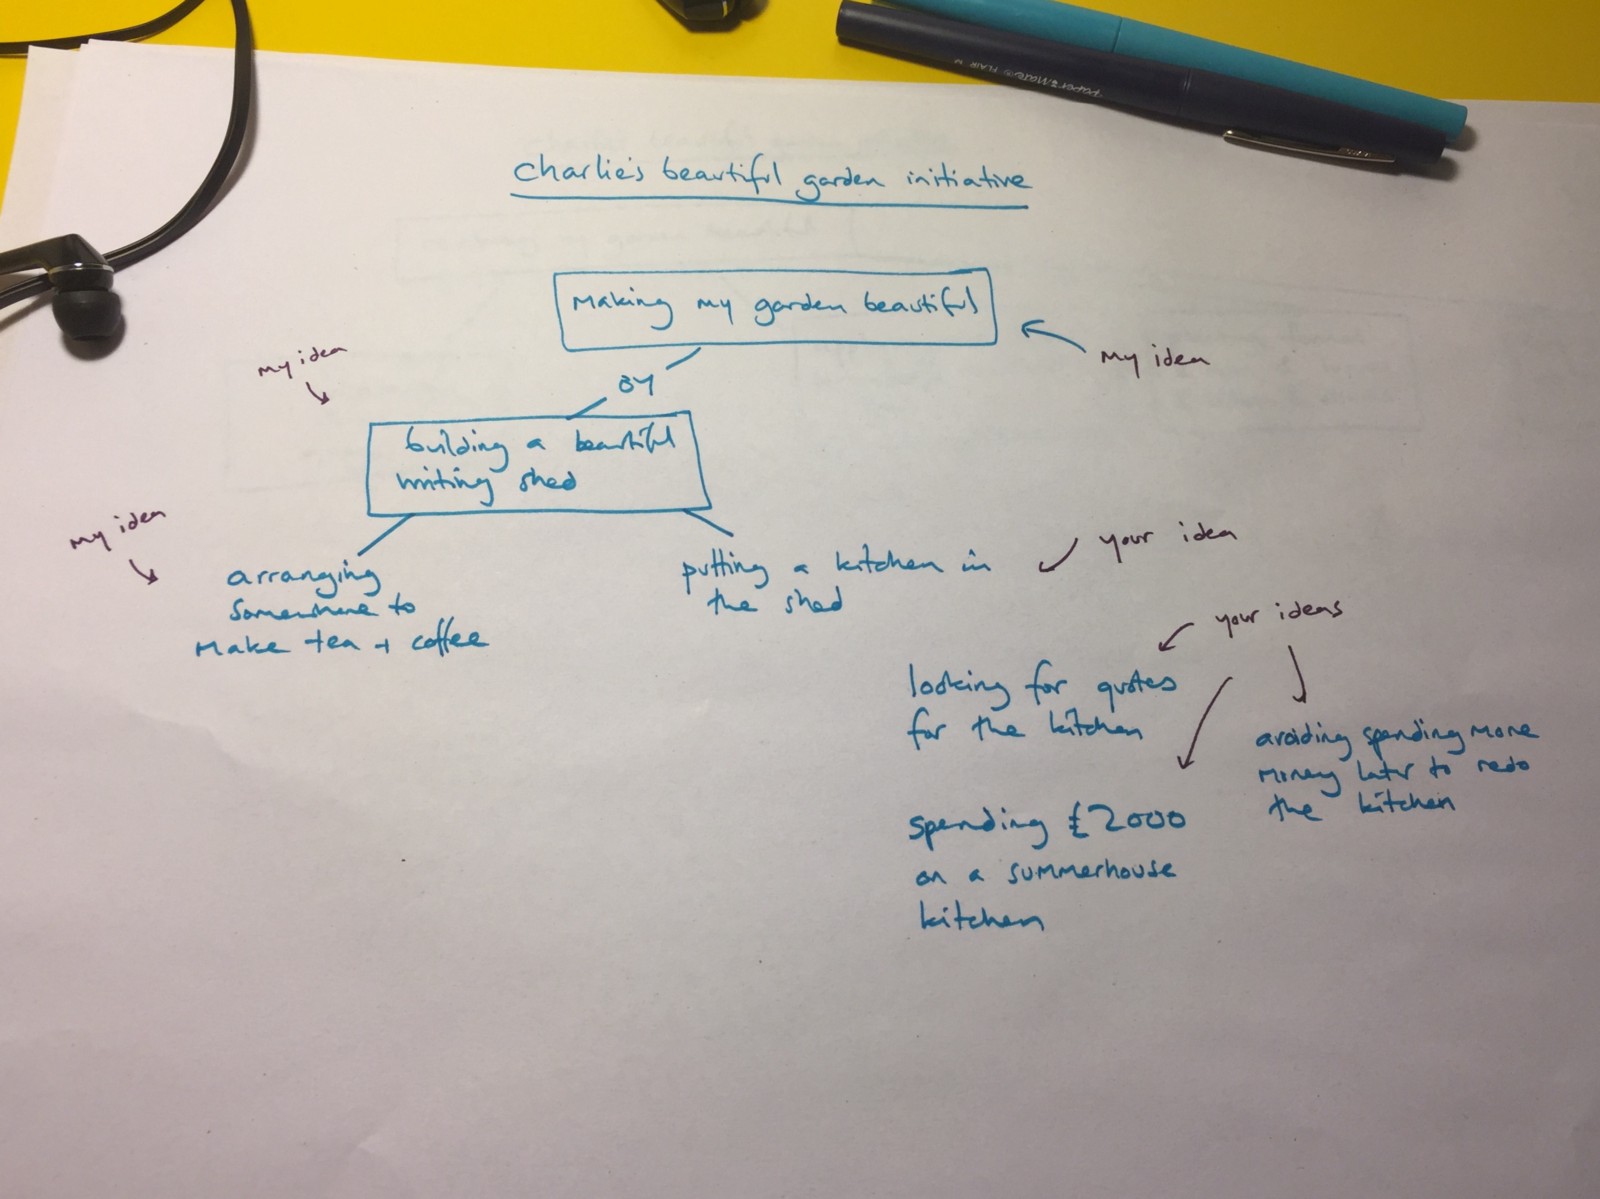 Paper:Mate® FLAIR M
Charlie's beautiful garden initiative
Making my garden beautiful
My idea
My idea
BY
building a beautiful
writing shed
My idea
arranging
somewhere to
Make tea + coffee
putting a kitchen in
the shed
your idea
your ideas
looking for quotes
for the kitchen
avoiding spending more
money later to redo
the kitchen
spending £2000
on a summerhouse
kitchen